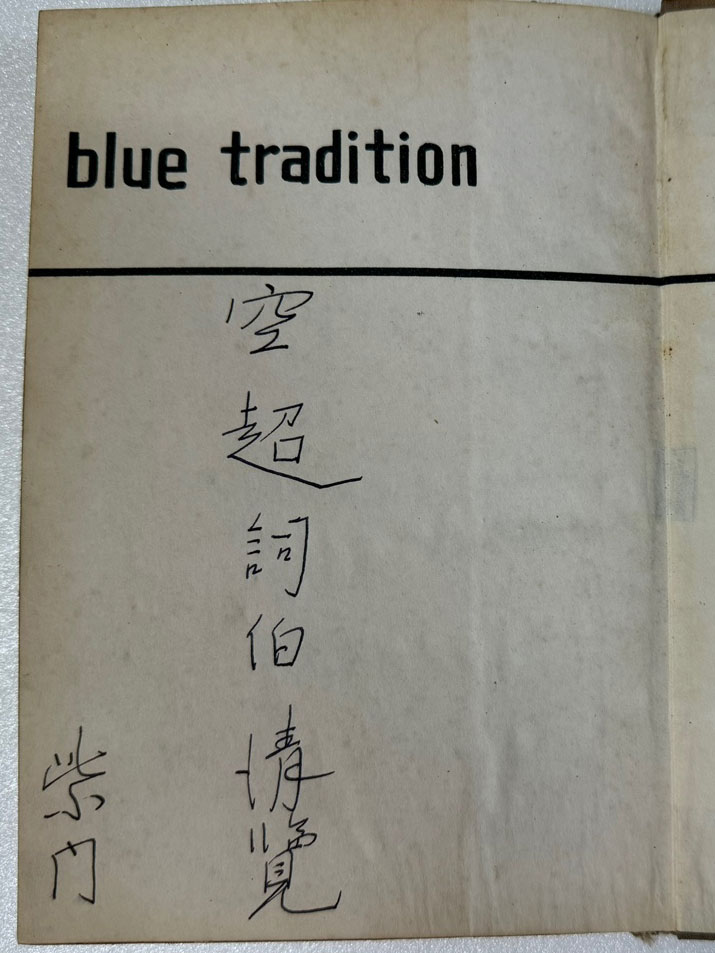 blue tradition
空超詞伯清覽
紫門